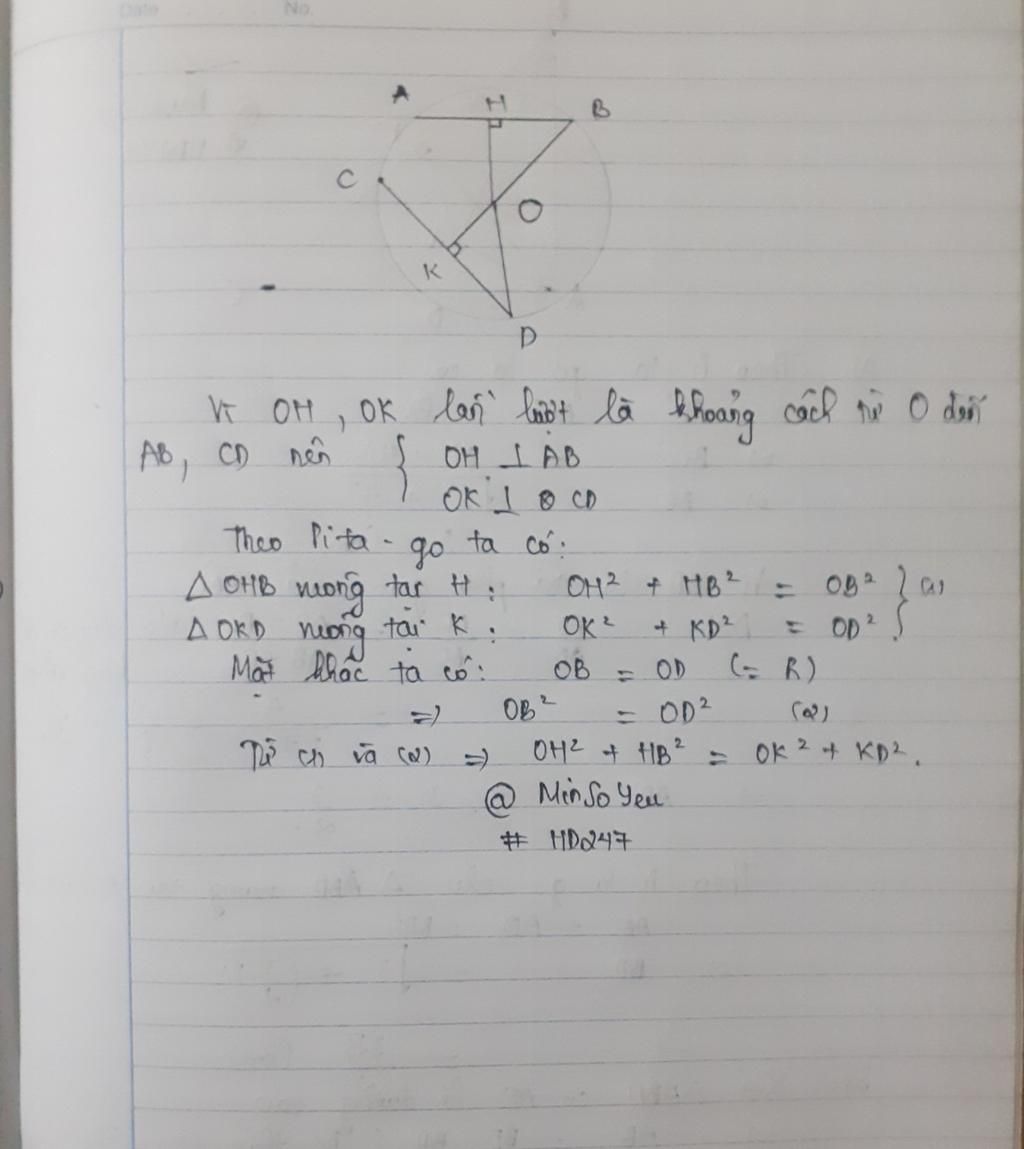 Date No.
A H B
C
O
K
D
Vì OH, OK lần lượt là khoảng cách từ O đến
AB, CD nên { OH ⊥ AB
OK ⊥ CD
Theo Pi-ta-go ta có:
△ OHB vuông tại H: OH² + HB² = OB² } (1)
△ OKD vuông tại K: OK² + KD² = OD²
Mặt khác ta có: OB = OD (= R)
=> OB² = OD² (2)
Từ (1) và (2) => OH² + HB² = OK² + KD².
@ MinSoYeu
# HD247